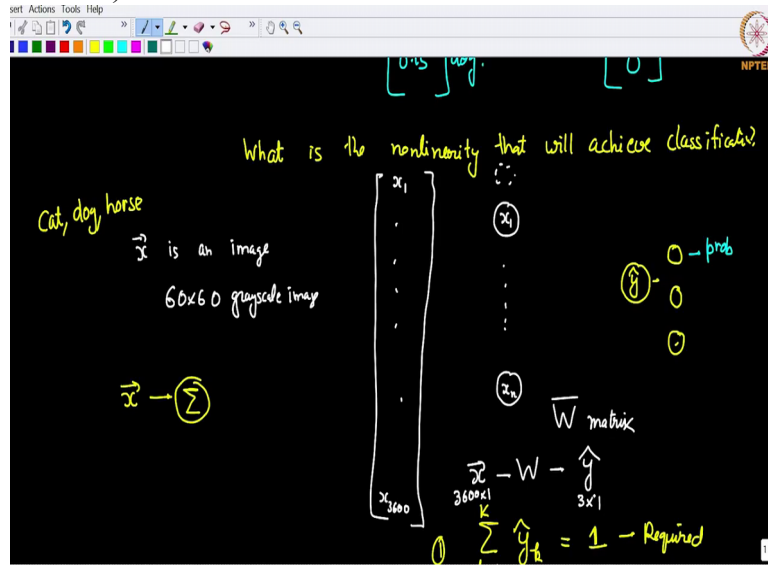 sert Actions Tools Help
NPTEL
0.15 dog.
0
What is the nonlinearity that will achieve classification?
Cat, dog, horse
x⃗ is an image
60x60 grayscale image
x₁
x₃₆₀₀
x₁
xₙ
ŷ
prob
x⃗ → Σ
W̅ matrix
x⃗ - W - ŷ
3600x1 3x1
① K Σ ŷₖ = 1 - Required